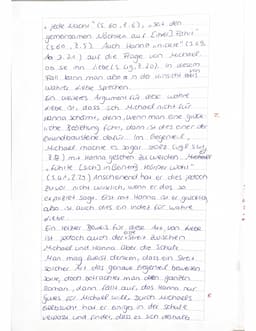 jede Nacht" (S. 60, Z. 6), "seit den
gemeinsamen Nächten auf [ihrer] Fahrt"
(S. 60, Z. 5). Auch Hanna "nickte" (S. 69,
Z. 21) auf die Frage von Michael
ob sie ihn liebe (S. Z. 20). In diesem
Fall kann man also in der Hinsicht von
wahrer Liebe sprechen.
Ein weiteres Argument für diese wahre
Liebe ist, dass sich Michael nicht für
Hanna schämt, denn wenn man eine glück-
liche Beziehung führt, dann ist dies einer der
Grundbausteine dafür. Im Gegenteil,
Michael machte es sogar stolz (vgl. S.
Z. 8) mit Hanna gesehen zu werden. Michael
"fühlte [sich] in [seinem] Körper wohl"
(S. 41, Z. 25) Anscheinend hat er dies jedoch
zuvor nicht wirklich, wenn er das so
explizit sagt. Erst mit Hanna ist er glücklich
also ist auch dies ein Indiz für wahre
Liebe.
Ein weiterer Beweis für diese Art von Liebe
ist jedoch auch der Streit zwischen
Michael und Hanna über die Schule.
Man mag zuerst denken, dass ein Streit
solcher Art das genaue Gegenteil beweisen
doch betrachtet man den ganzen
Roman, dann fällt auf, dass Hanna nur
gutes für Michael will. Durch Michaels
Gelbsucht hat er einiges in der Schule
verpasst und findet, dass es sich deshalb